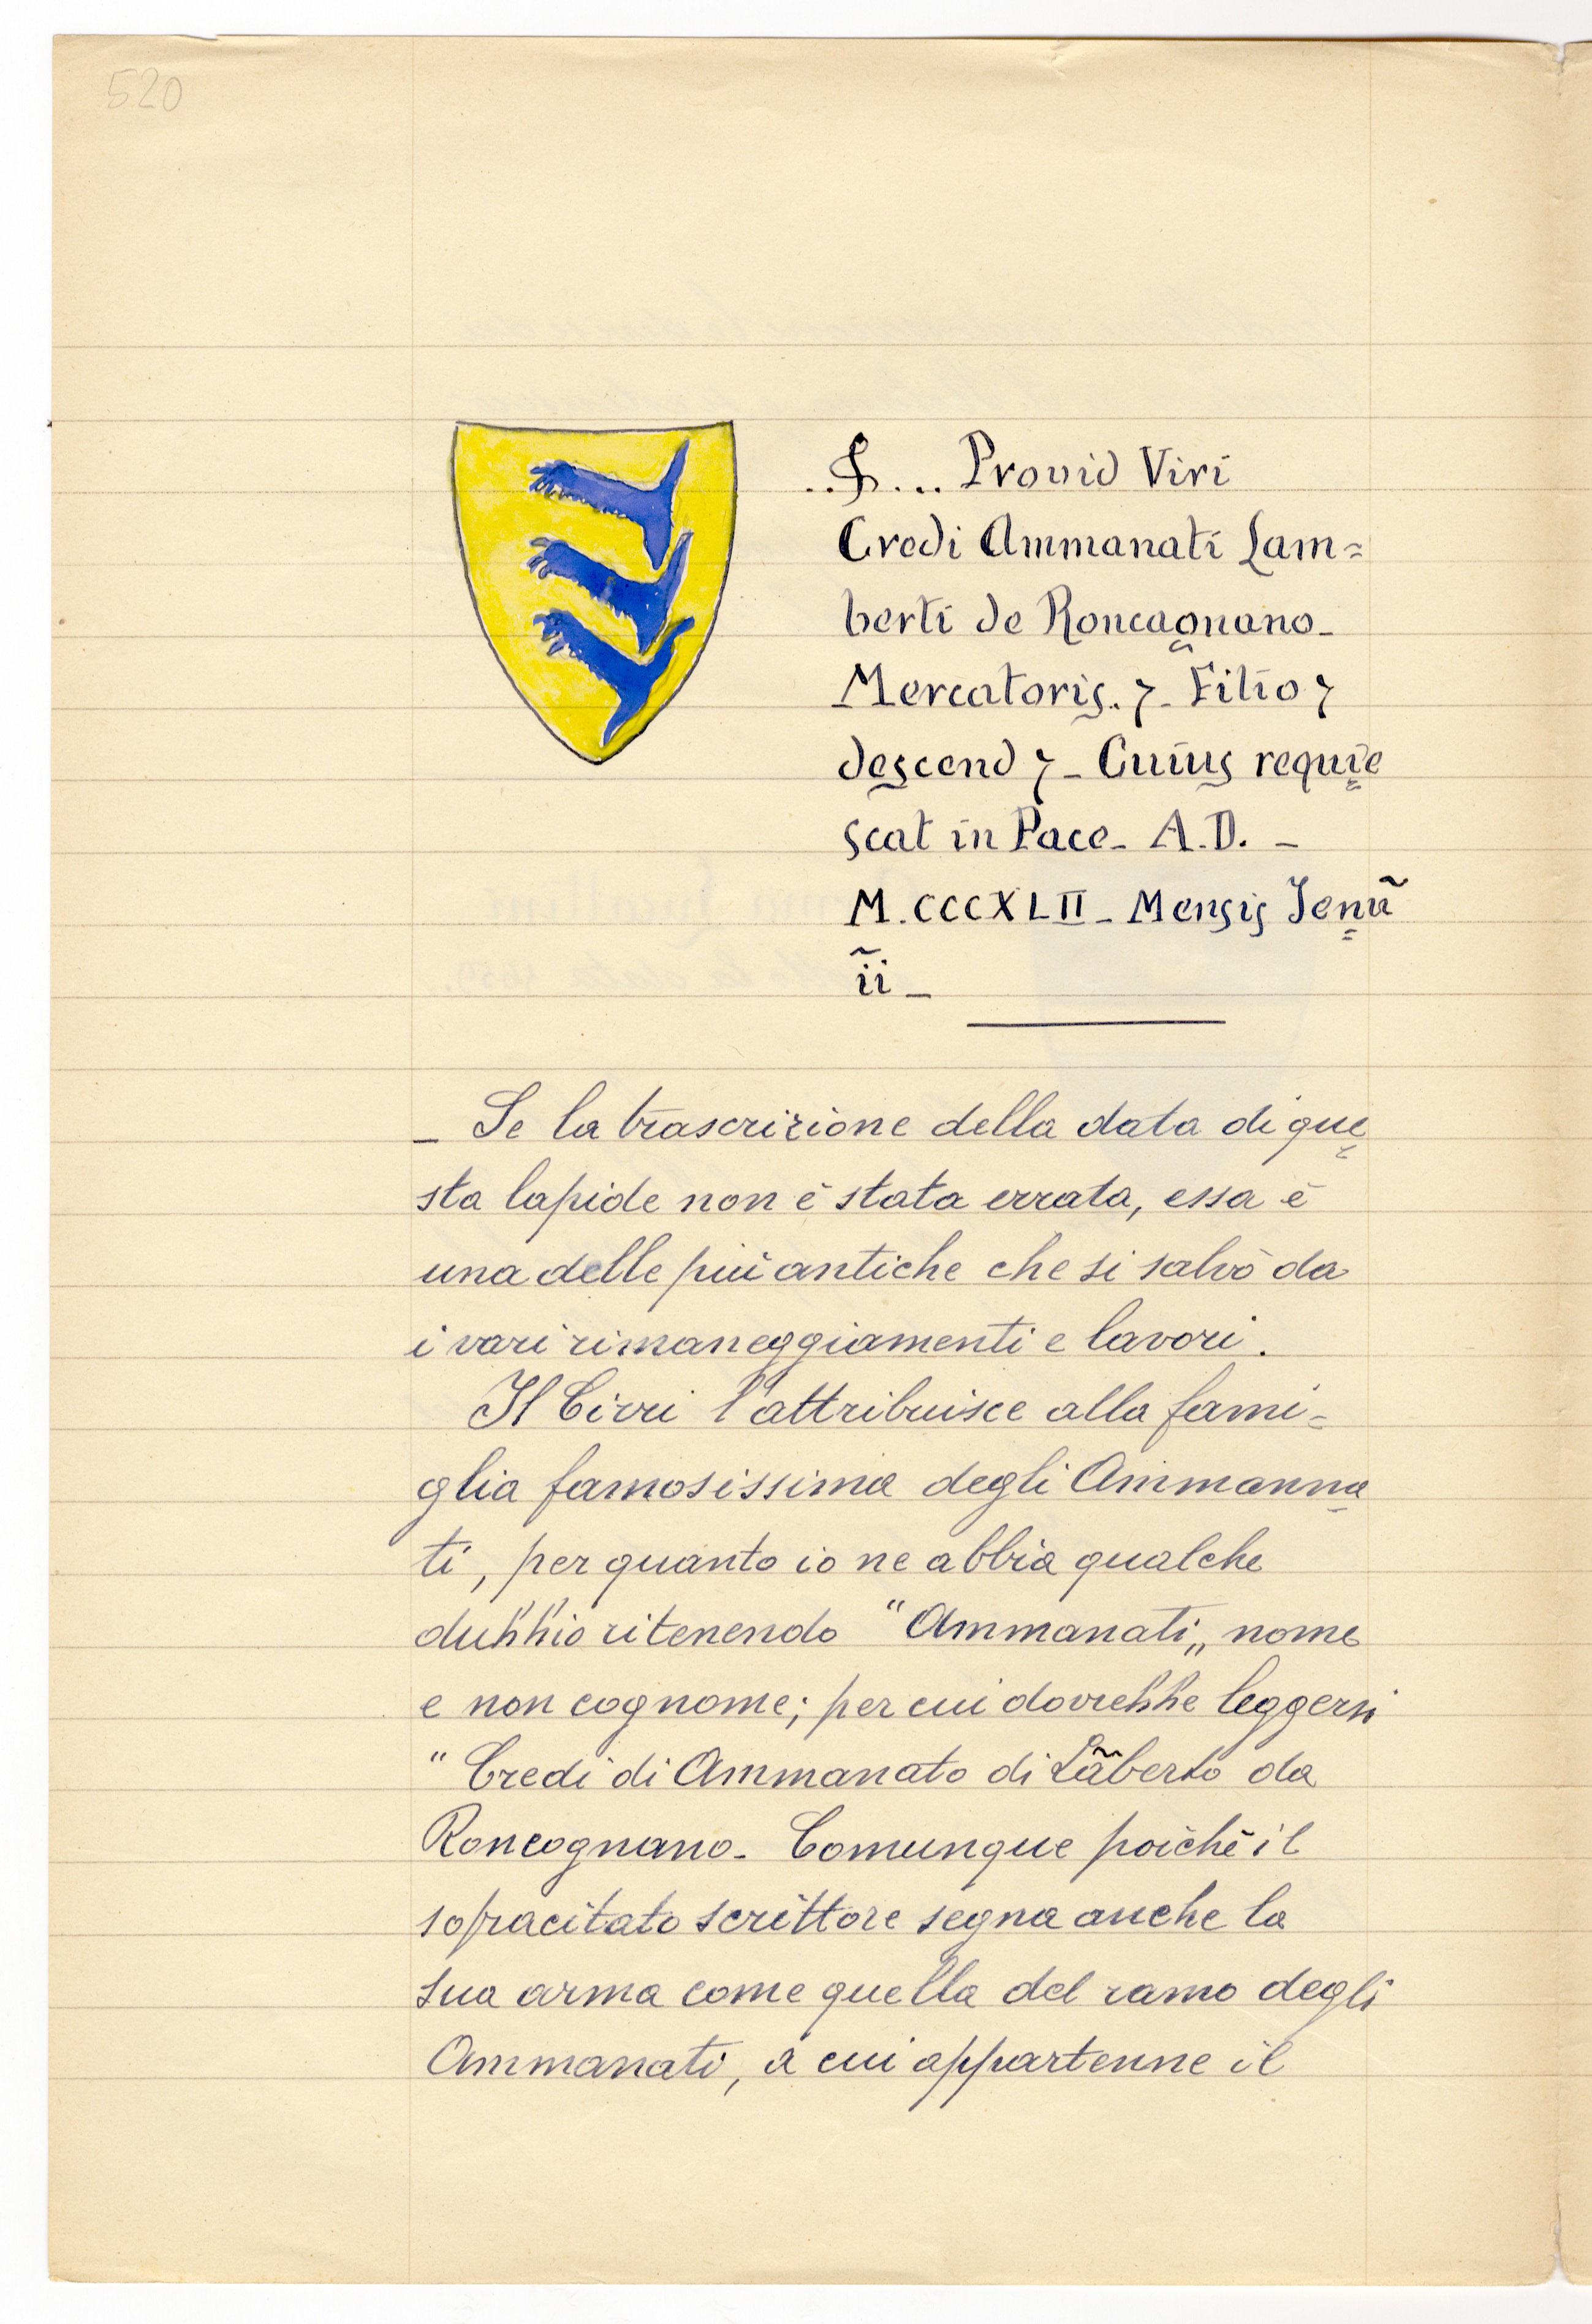 520
..S... Provid Viri
Credi Ammanati Lam=
berti de Roncagnano_
Mercatoris. 7_ Filio 7
descend 7_ Cuius requie
scat in Pace_ A.D. _
M.CCCXLII_ Mensis Jenũ
ĩi_
_ Se la trascrizione della data di que
sta lapide non è stata errata, essa è
una delle più antiche che si salvò da
i vari rimaneggiamenti e lavori.
Il Cirri l'attribuisce alla fami=
glia famosissima degli Ammanna
ti, per quanto io ne abbia qualche
dubbio ritenendo "Ammanati„ nome
e non cognome; per cui dovrebbe leggersi
"Credi di Ammanato di Lãberto da
Roncognano_ Comunque poichè il
sopracitato scrittore segna anche la
sua arma come quella del ramo degli
Ammanati, a cui appartenne il